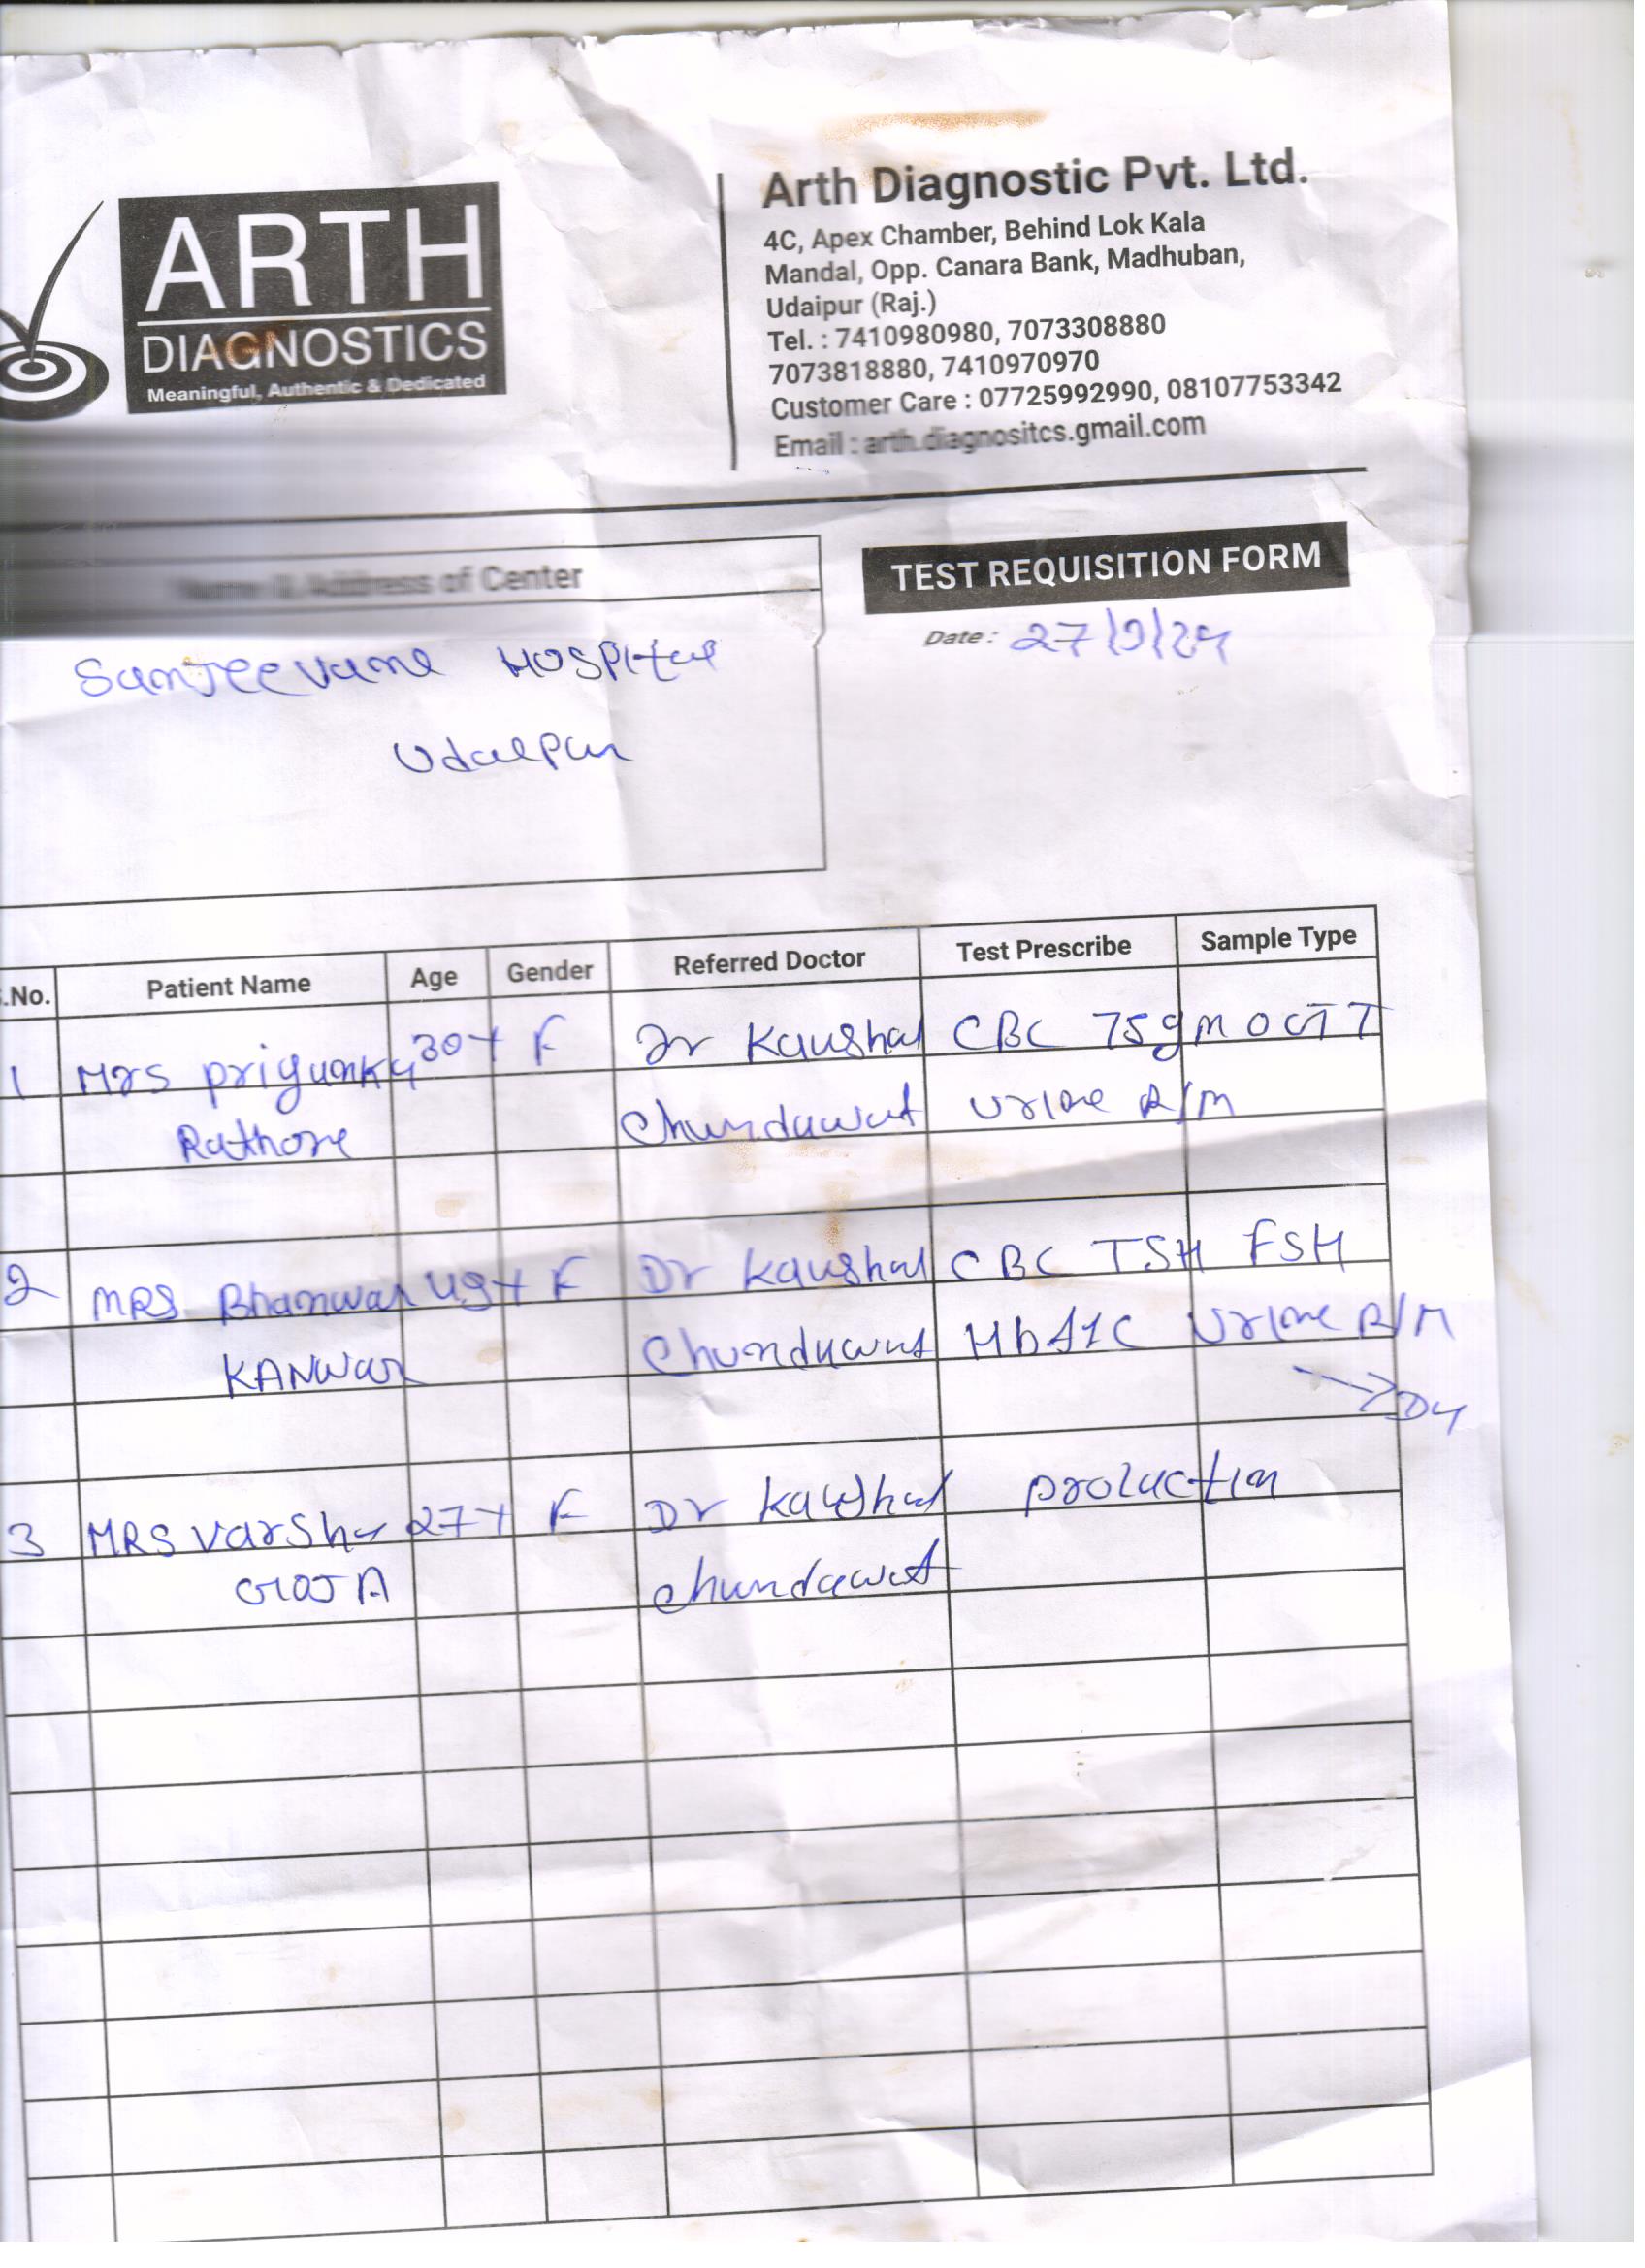 ARTH
DIAGNOSTICS
Meaningful, Authentic & Dedicated
Arth Diagnostic Pvt. Ltd.
4C, Apex Chamber, Behind Lok Kala
Mandal, Opp. Canara Bank, Madhuban,
Udaipur (Raj.)
Tel. : 7410980980, 7073308880
7073818880, 7410970970
Customer Care : 07725992990, 08107753342
Email : arth.diagnositcs.gmail.com
Name & Address of Center
TEST REQUISITION FORM
Date : 27/9/24
Sanjeevane HOSPital
Udaipur
.No. Patient Name Age Gender Referred Doctor Test Prescribe Sample Type
1 Mrs priyanka 30Y F Dr Kaushal CBC 75gm OGTT
Rathore Chundawat Urine R/M
2 MRS Bhanwar 49Y F Dr Kaushal CBC TSH FSH
KANWAR Chundawat HbA1C Urine R/M
3 MRS Varsha 27Y F Dr Kaushal prolactin
OJA Chundawat